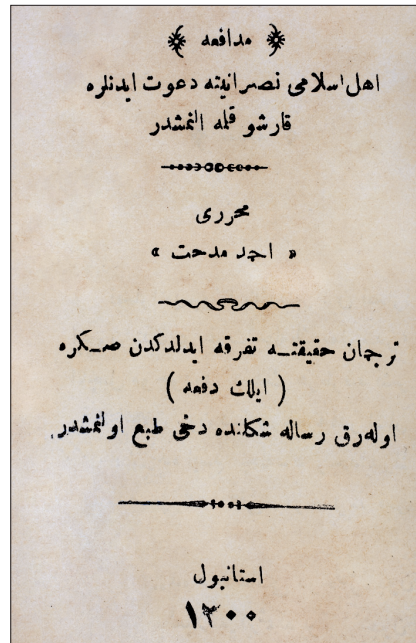 مدافعه
اهل اسلامی نصرانیته دعوت ایدنلره
قارشو قلمه النمشدر
محرری
« احمد مدحت »
ترجمان حقیقتـه تفرقه ایدلدكدن صـكره
( ایلك دفعه )
اوله‌رق رساله شكلنده دخی طبع اولنمشدر.
استانبول
١٣٠٠